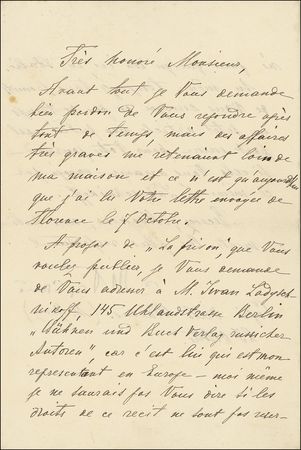 Très honoré Monsieur,
Avant tout je Vous demande
bien pardon de Vous repondre après
tant de temps, mais des affaires
très graves me retenaient loin de
ma maison et ce n'est qu'aujourd'hui
que j'ai lu Votre lettre envoyée de
Florence le 7 Octobre.
A propos de "La prison", que Vous
voulez publier, je Vous demande
de Vous adresser à M. Iwan Ladysch-
nikoff, 145 Uhlandstrasse Berlin
"Bühnen und Buch Verlag russicher
Autoren", car c'est lui qui est mon
representant en Europe – moi même
je ne saurais pas Vous dire si les
droits de ce recit ne sont pas reser-